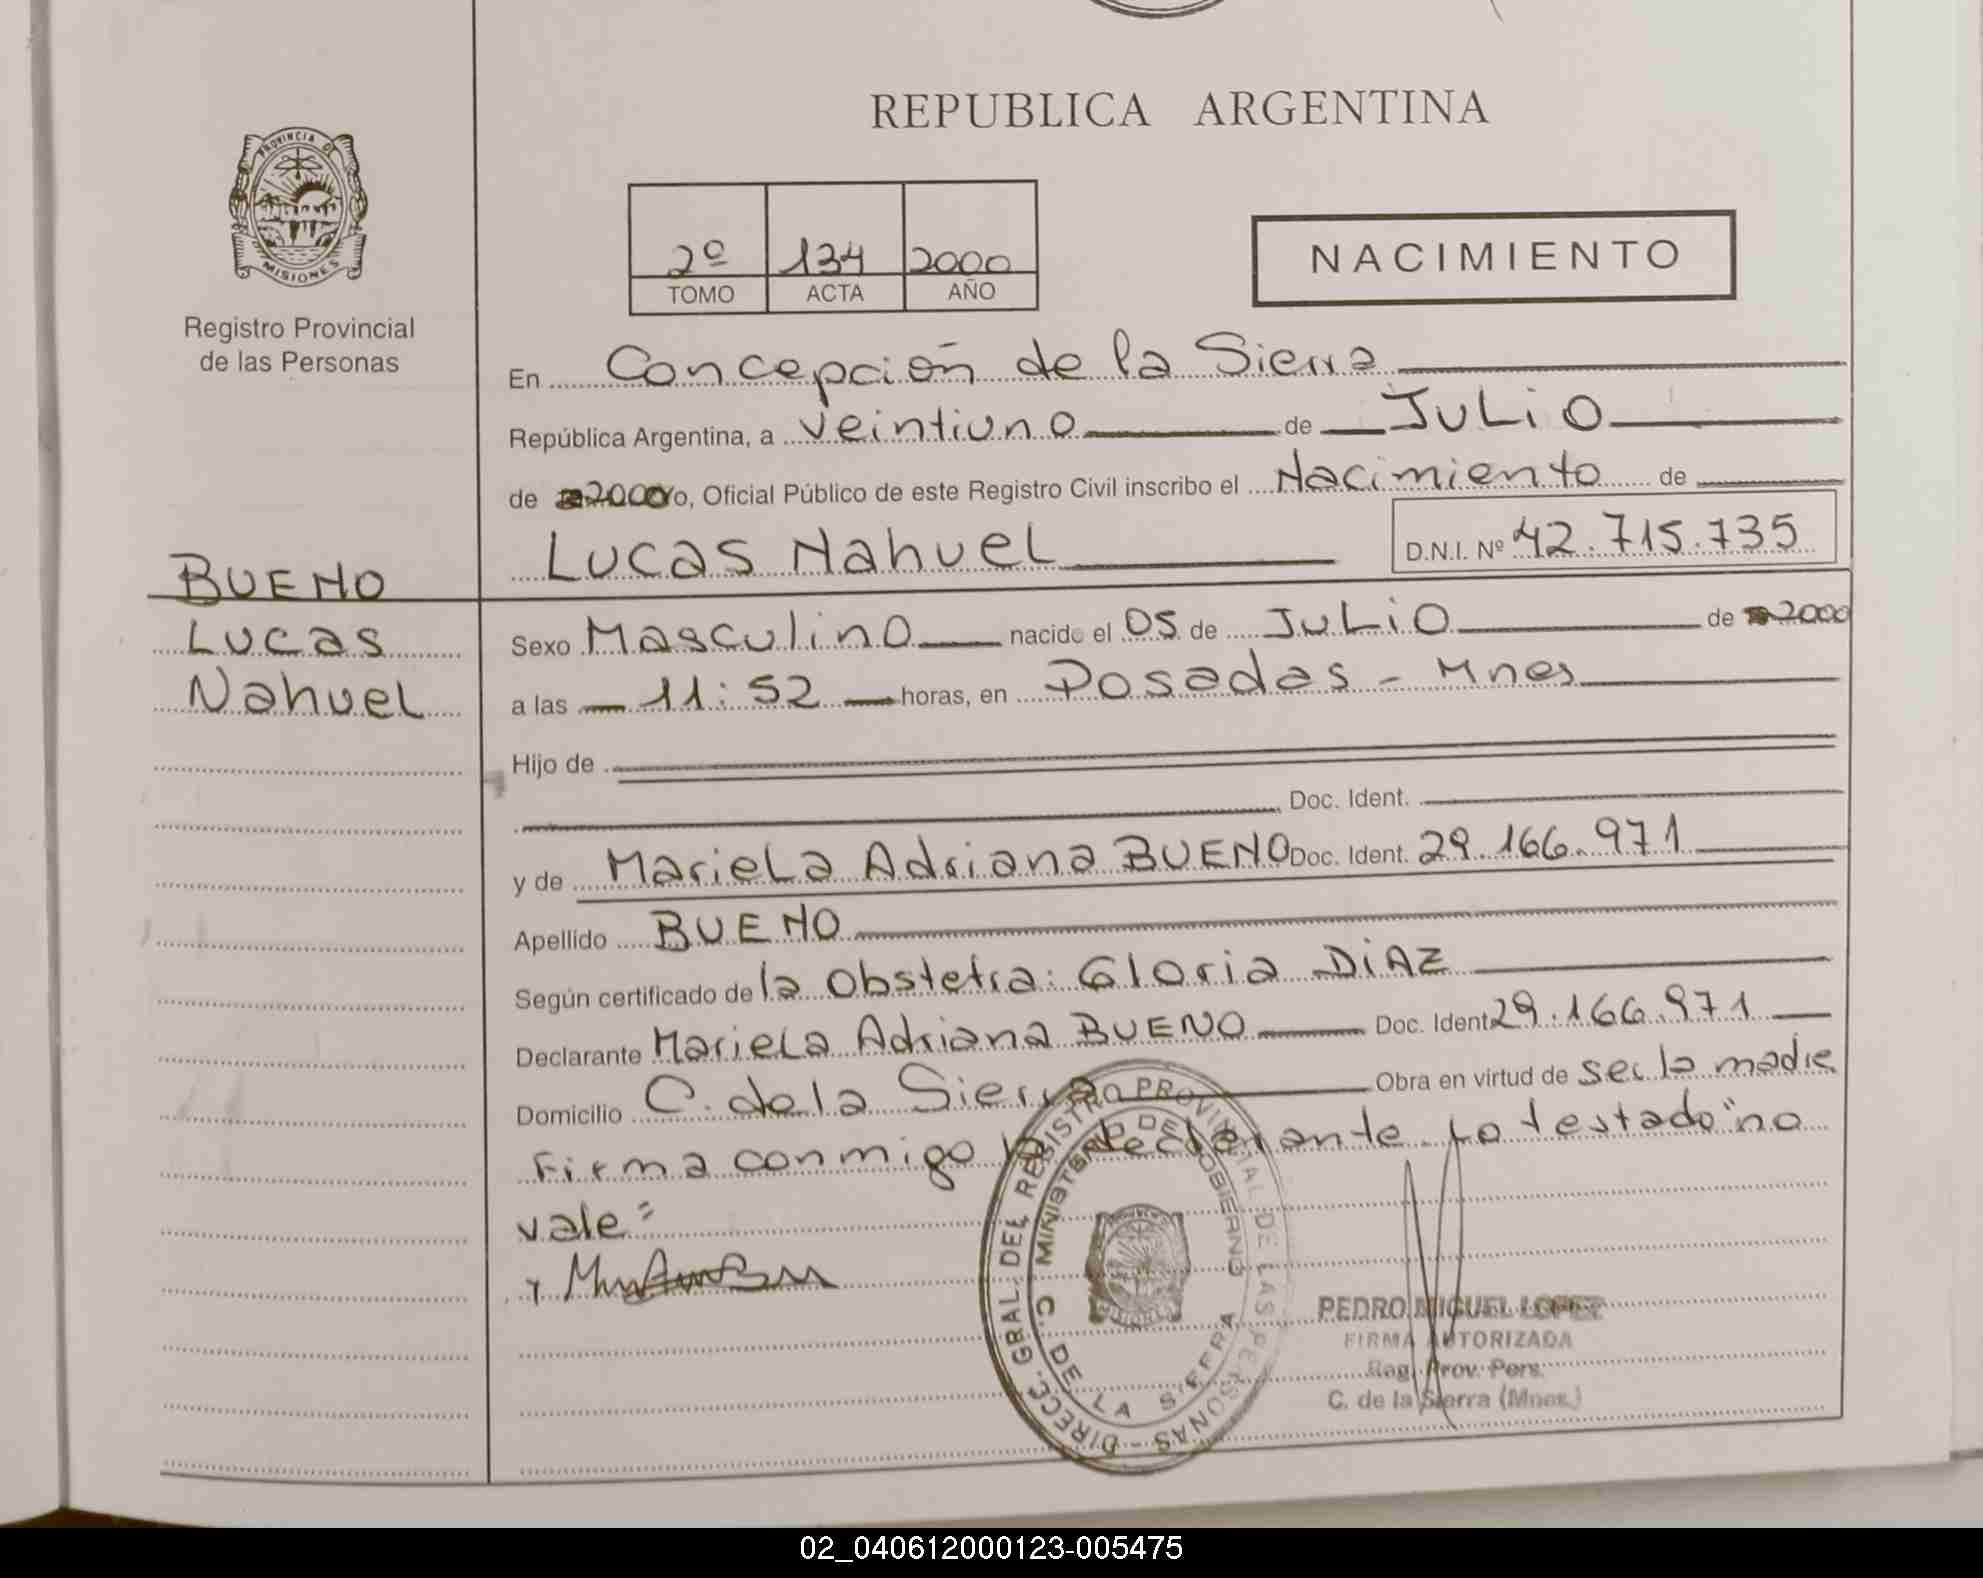 REPUBLICA ARGENTINA
PROVINCIA DE
MISIONES
Registro Provincial
de las Personas
2º 134 2000
TOMO ACTA AÑO
NACIMIENTO
En Concepción de la Sierra
República Argentina, a veintiuno de JULIO
de 2000 yo, Oficial Público de este Registro Civil inscribo el Nacimiento de
LUCAS Nahuel D.N.I. Nº 42.715.735
BUENO
Lucas
Nahuel
Sexo Masculino nacido el 05 de JULIO de 2000
a las 11:52 horas, en Posadas - Mnes
Hijo de
Doc. Ident.
y de Mariela Adriana BUENO Doc. Ident. 29.166.971
Apellido BUENO
Según certificado de la Obstetra: Gloria DiAZ
Declarante Mariela Adriana BUENO Doc. Ident 29.166.971
Domicilio C. de la Sierra Obra en virtud de ser la madre
Firma conmigo la declarante. Lo testado "no
vale"
DIRECC. GRAL. DEL REGISTRO PROVINCIAL DE LAS PERSONAS -
MINISTERIO DE GOBIERNO
C. DE LA SIERRA
PEDRO MIGUEL LOPEZ
FIRMA AUTORIZADA
Reg. Prov. Pers.
C. de la Sierra (Mnes.)
02_040612000123-005475